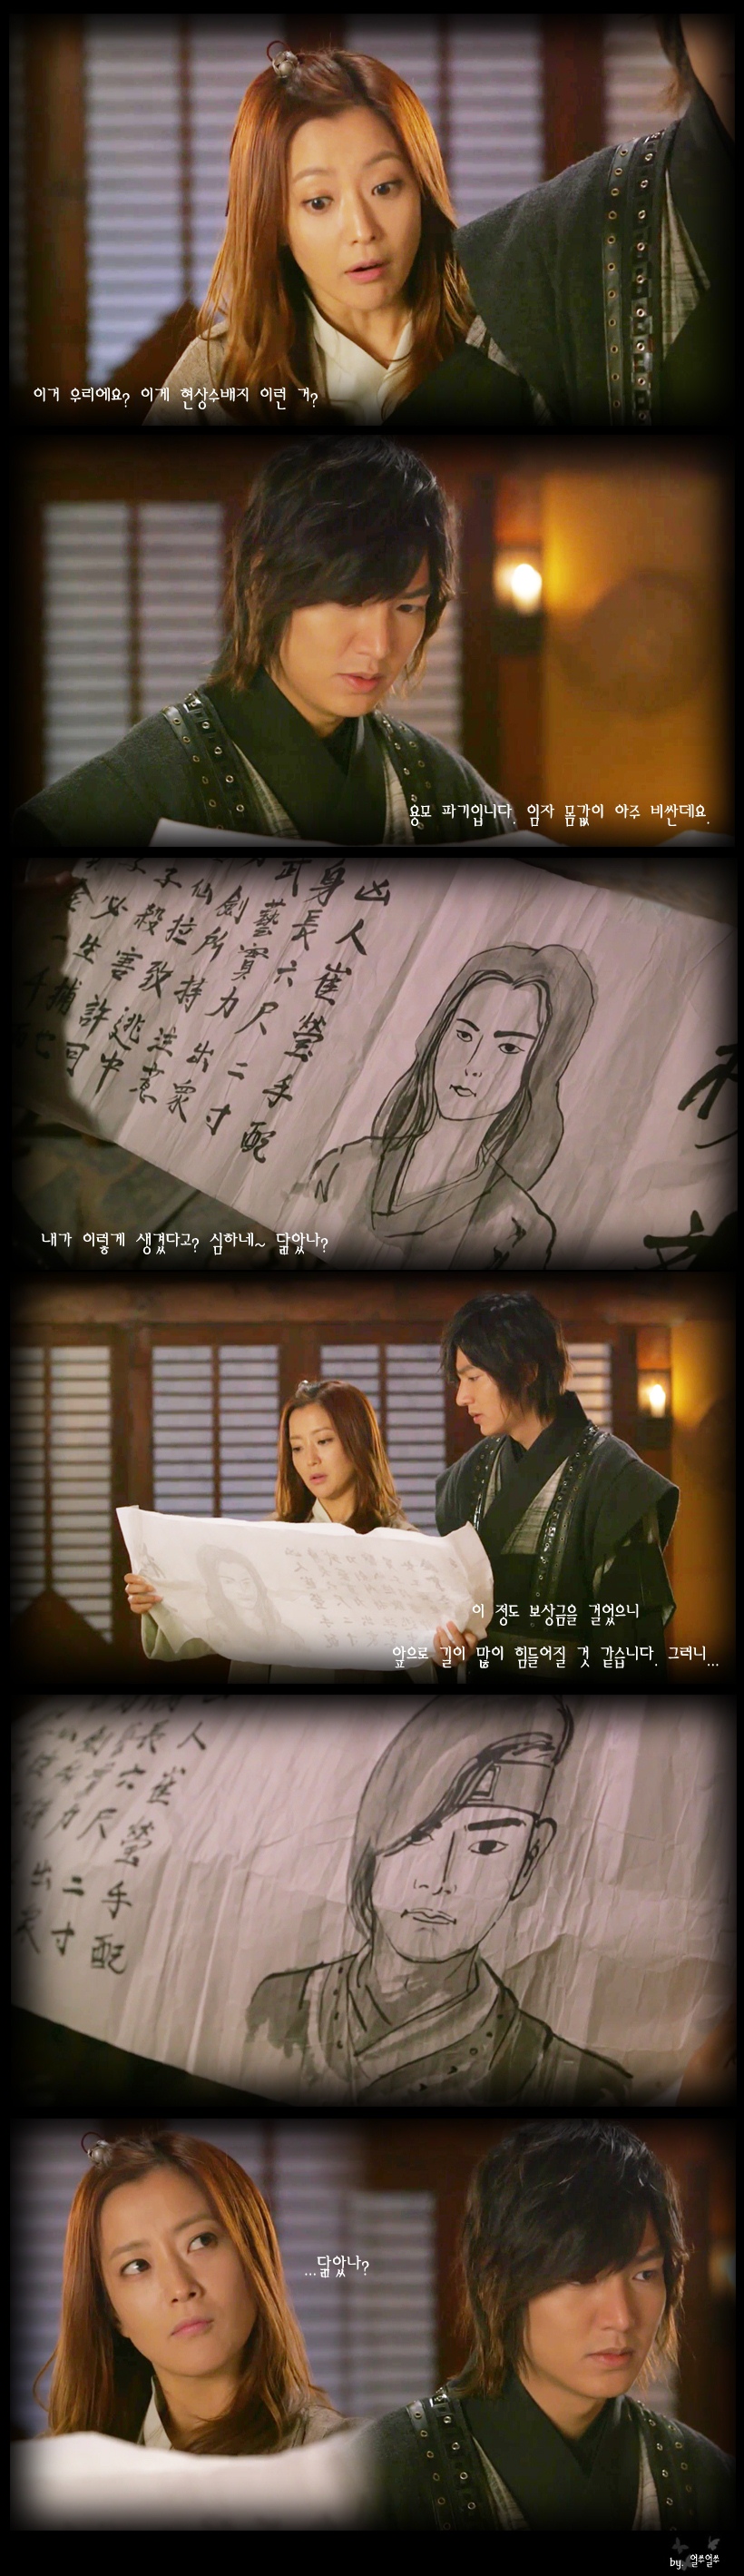 이거 우리에요? 이게 현상수배지 이런 거?
용모 파기입니다. 임자 몸값이 아주 비싼데요.
凶人崔瑩手配
身長六尺二寸
武藝實力出衆
劍所持注意
仙拉致逃中
子殺害許可
必生捕
내가 이렇게 생겼다고? 심하네~ 닮았나?
이 정도 보상금을 걸었으니
앞으로 길이 많이 힘들어질 것 같습니다. 그러니...
人崔瑩手配
長六尺二寸
...닮았나?
by. 얼쑤얼쑤